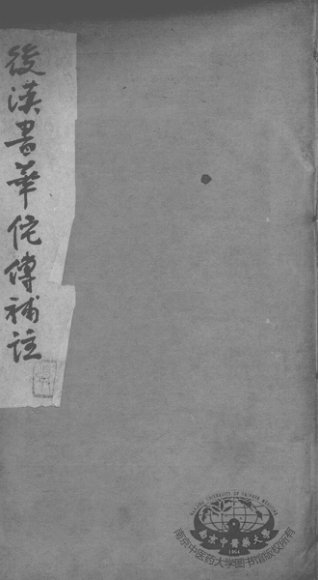 後漢書華佗傳補註
NANJING UNIVERSITY OF CHINESE MEDICINE
南京中醫藥大學
1954
南京中医药大学图书馆版权所有